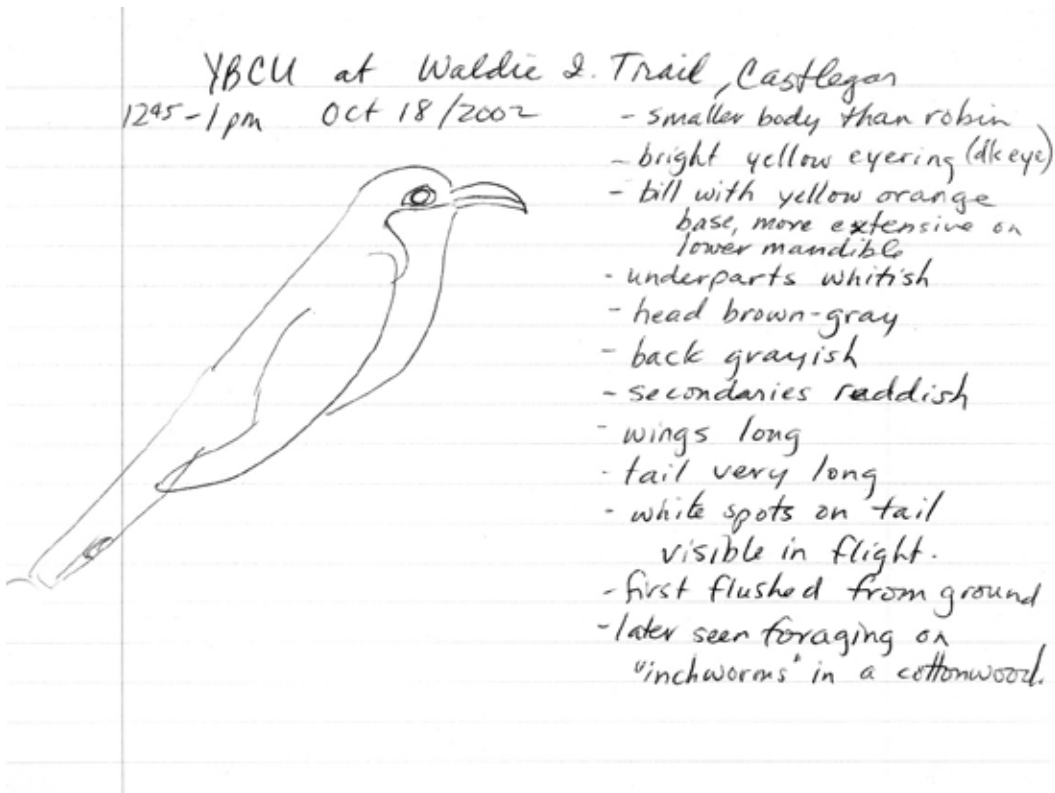 YBCU at Waldie I. Trail, Castlegar
1245-1pm Oct 18/2002
- smaller body than robin
- bright yellow eyering (dk eye)
- bill with yellow orange
base, more extensive on
lower mandible
- underparts whitish
- head brown-gray
- back grayish
- secondaries reddish
- wings long
- tail very long
- white spots on tail
visible in flight.
- first flushed from ground
- later seen foraging on
"inchworms" in a cottonwood.